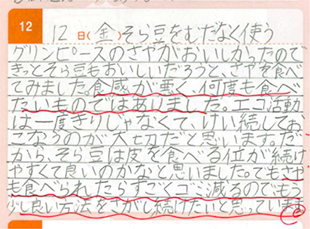 12
12日(金)そら豆をむだなく使う
グリンピースのさやがおいしかったので
きっとそら豆もおいしいだろうと、さやを食べ
てみました。食感が悪く、何度も食べ
たいものではありました。エコ活動
は一度きりじゃなくて、けい続してお
こなうのが大切だと思います。だ
から、そら豆は皮を食べる位が続け
やすくて良いのかなと思いました。でもさや
も食べられたらすごくゴミ減るのでもう
少し良い方法をさがし続けたいと思っています